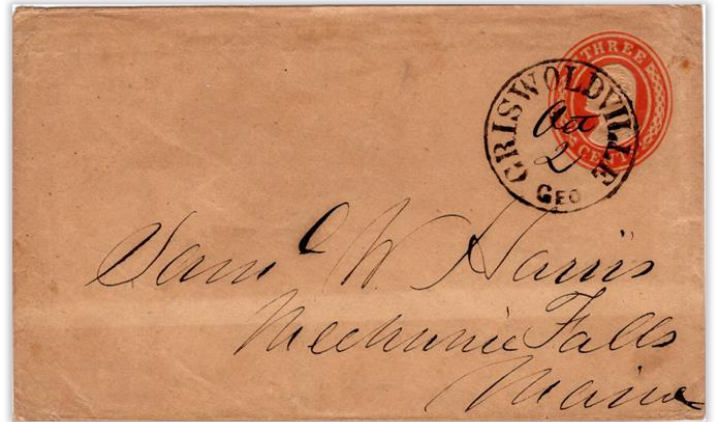 THREE
CENTS
GRISWOLDVILLE
Oct
2
GEO
Saml W. Harris
Mechanic Falls
Maine